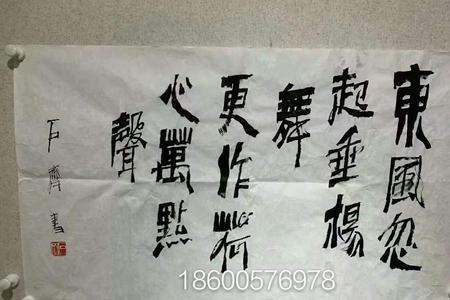 東風忽
起垂楊
舞
更作荷
心萬點
聲
石齊書
18600576978